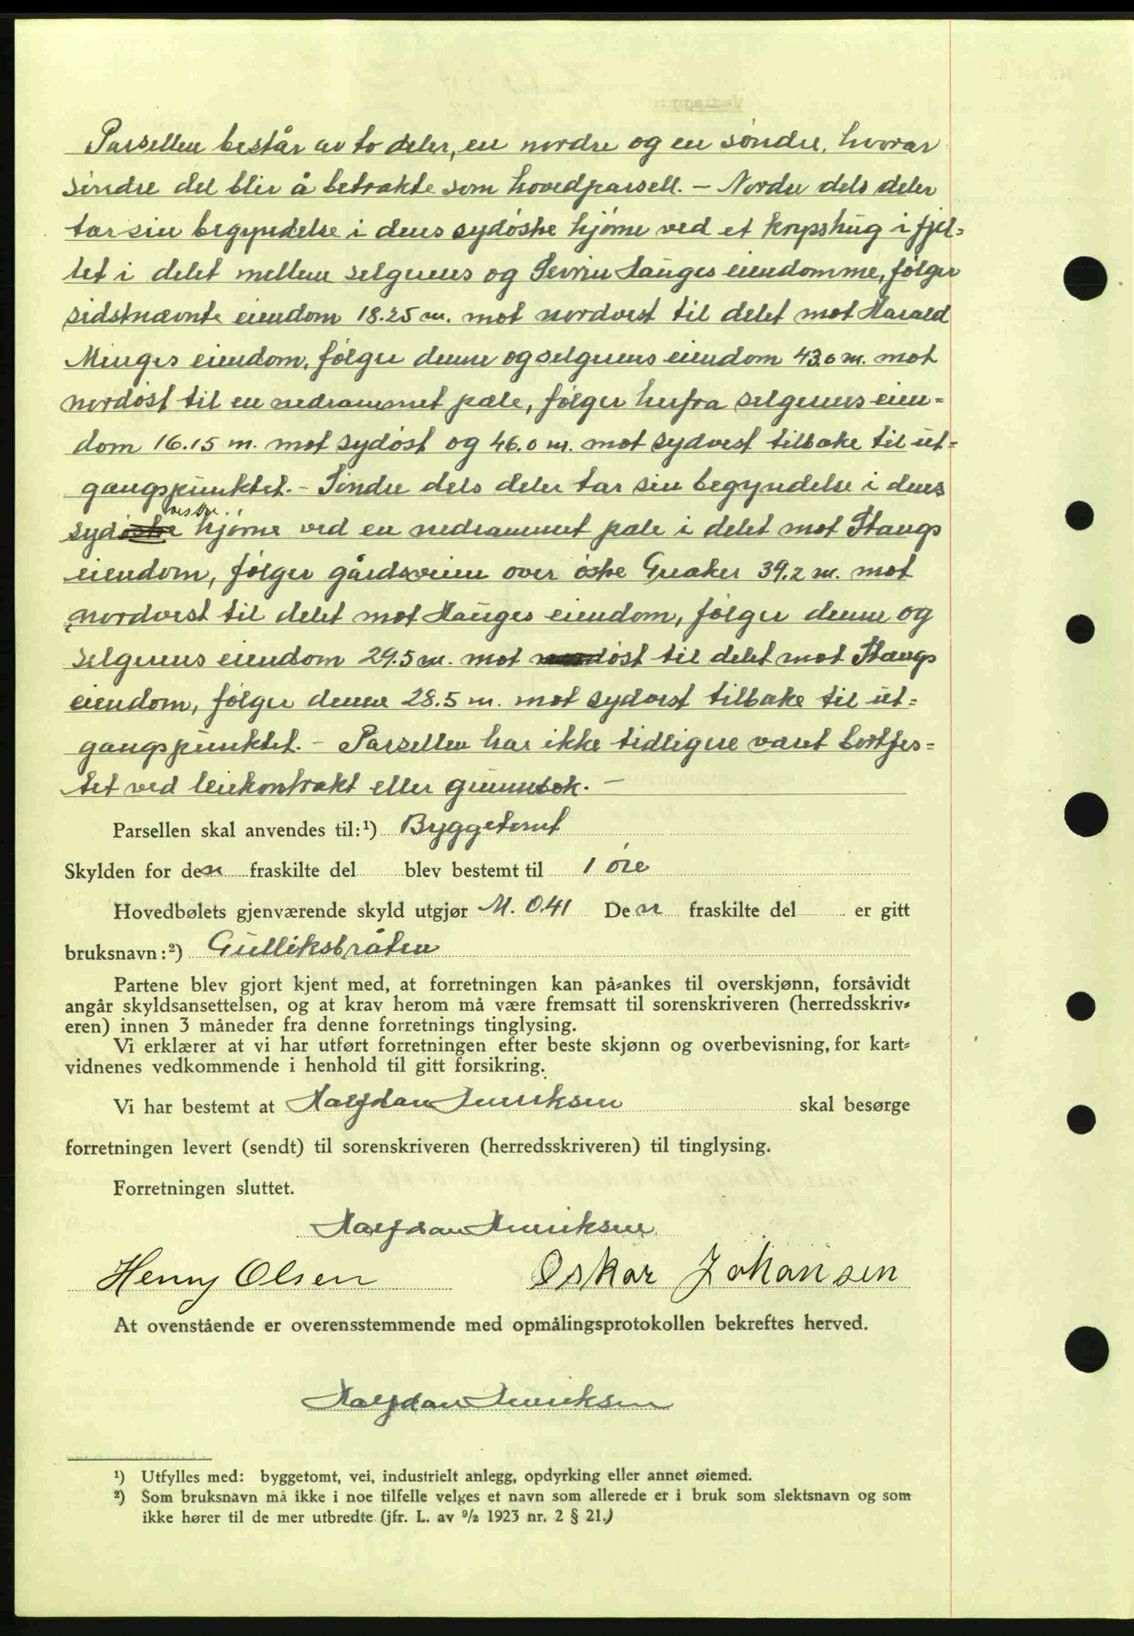 Parsellen består av to deler, en nordre og en søndre, hvorav
søndre del blir å betrakte som hovedparsell. – Nordre dels deler
tar sin begyndelse i dens sydøstre hjørne ved et krysshug i fjel-
let i delet mellem selgerens og Hauges eiendomme, følger
sidstnævnte eiendom 18.25 m. mot nordvest til delet mot Harald
Minges eiendom, følger denne og selgerens eiendom 43.0 m. mot
nordøst til en nedrammet pæle, følger herfra selgerens eien-
dom 16.15 m. mot sydøst og 46.0 m. mot sydvest tilbake til ut-
gangspunktet. – Søndre dels deler tar sin begyndelse i dens
vestre
sydøstre hjørne ved en nedrammet pæle i delet mot Stangs
eiendom, følger gårdsveien over østre Greaker 39.2 m. mot
nordvest til delet mot Hauges eiendom, følger denne og
selgerens eiendom 29.5 m. mot øst til delet mot Stangs
eiendom, følger denne 28.5 m. mot sydvest tilbake til ut-
gangspunktet. – Parsellen har ikke tidligere været bortfes-
tet ved leiekontrakt eller grunnbok. –
Parsellen skal anvendes til:¹) Byggetomt
Skylden for den fraskilte del blev bestemt til 1 øre
Hovedbølets gjenværende skyld utgjør M. 0.41 Den fraskilte del er gitt
bruksnavn:²) Gulliksbråten
Partene blev gjort kjent med, at forretningen kan på-ankes til overskjønn, forsåvidt
angår skyldsansettelsen, og at krav herom må være fremsatt til sorenskriveren (herredsskriv-
eren) innen 3 måneder fra denne forretnings tinglysing.
Vi erklærer at vi har utført forretningen efter beste skjønn og overbevisning, for kart-
vidnenes vedkommende i henhold til gitt forsikring.
Vi har bestemt at Halfdan Henriksen skal besørge
forretningen levert (sendt) til sorenskriveren (herredsskriveren) til tinglysing.
Forretningen sluttet.
Halfdan Henriksen
Henry Olsen Oskar Johansen
At ovenstående er overensstemmende med opmålingsprotokollen bekreftes herved.
Halfdan Henriksen
¹) Utfylles med: byggetomt, vei, industrielt anlegg, opdyrking eller annet øiemed.
²) Som bruksnavn må ikke i noe tilfelle velges et navn som allerede er i bruk som slektsnavn og som
ikke hører til de mer utbredte (jfr. L. av ⁹/₂ 1923 nr. 2 § 21.)